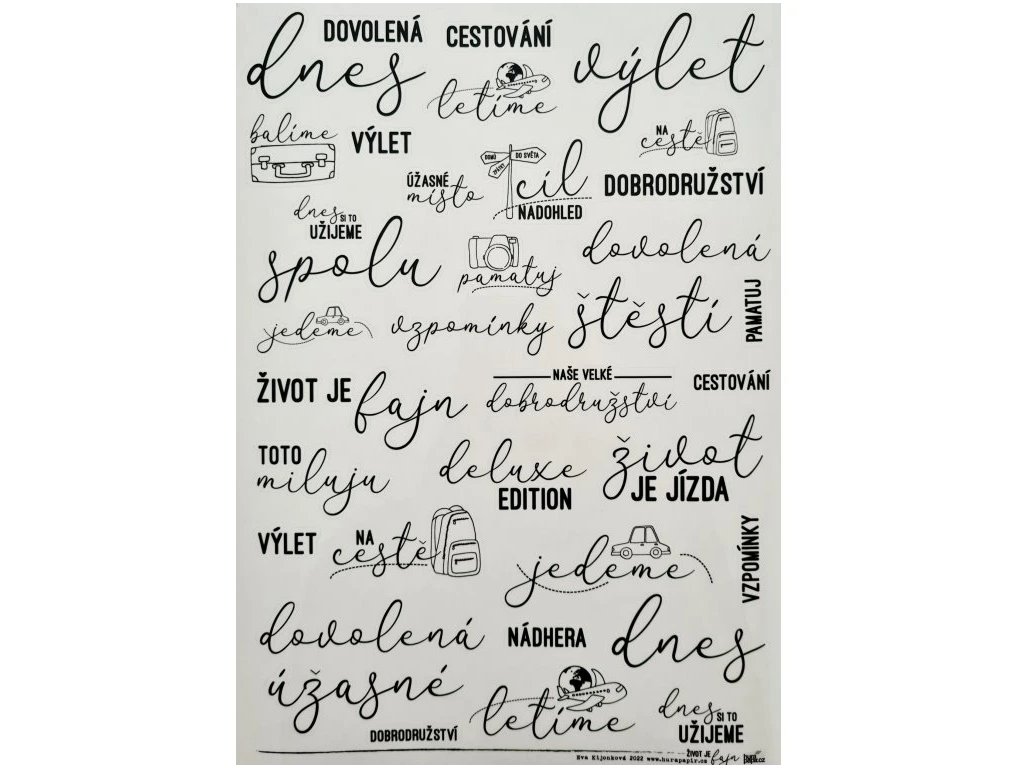 dnes
DOVOLENÁ
CESTOVÁNÍ
výlet
letíme
balíme
VÝLET
NA
cestě
ÚŽASNÉ
místo
DOMŮ
DO SVĚTA
ZPÁTKY
cíl
NADOHLED
DOBRODRUŽSTVÍ
dnes
SI TO
UŽIJEME
spolu
pamatuj
dovolená
jedeme
vzpomínky
štěstí
PAMATUJ
ŽIVOT JE
fajn
NAŠE VELKÉ
dobrodružství
CESTOVÁNÍ
TOTO
miluju
deluxe
EDITION
život
JE JÍZDA
VÝLET
NA
cestě
jedeme
VZPOMÍNKY
dovolená
NÁDHERA
dnes
úžasné
letíme
DOBRODRUŽSTVÍ
dnes
SI TO
UŽIJEME
Eva Kijonková 2022 www.hurapapir.cz
ŽIVOT JE
fajn